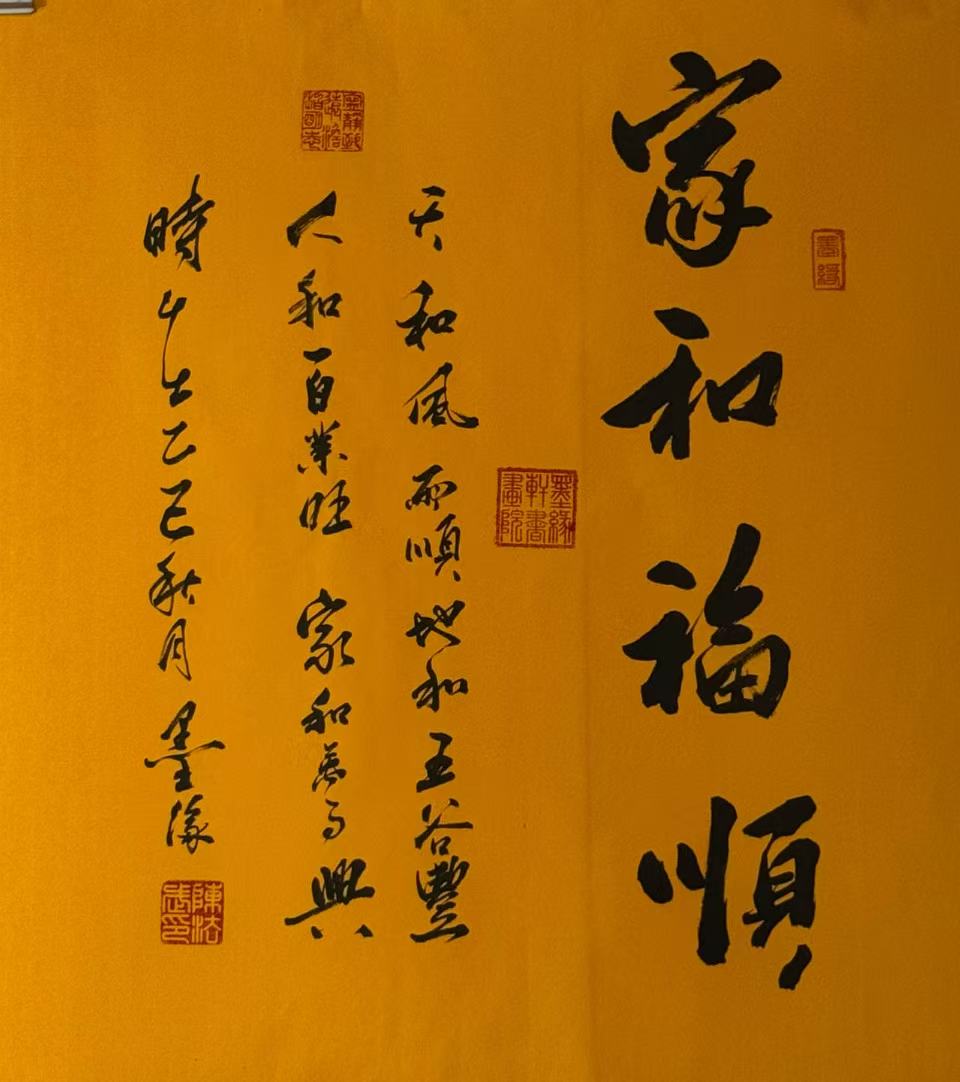 墨緣
家和福順
墨緣軒書畫院
天和風雨順地和五谷豐
寧靜致遠
人和百業旺 家和萬事興
時 乙巳秋月墨緣
陳法 印